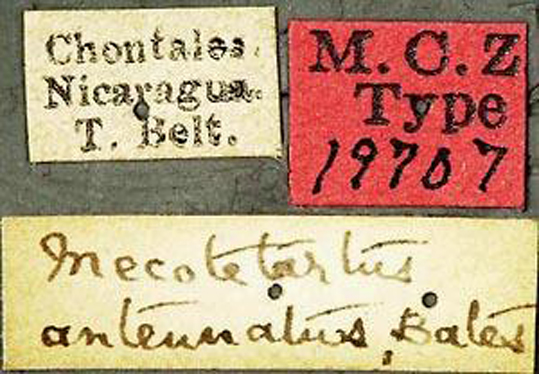 Chontales.
Nicaragua.
T. Belt.
M. C. Z
Type
19707
Mecotetartus
antennatus, Bates